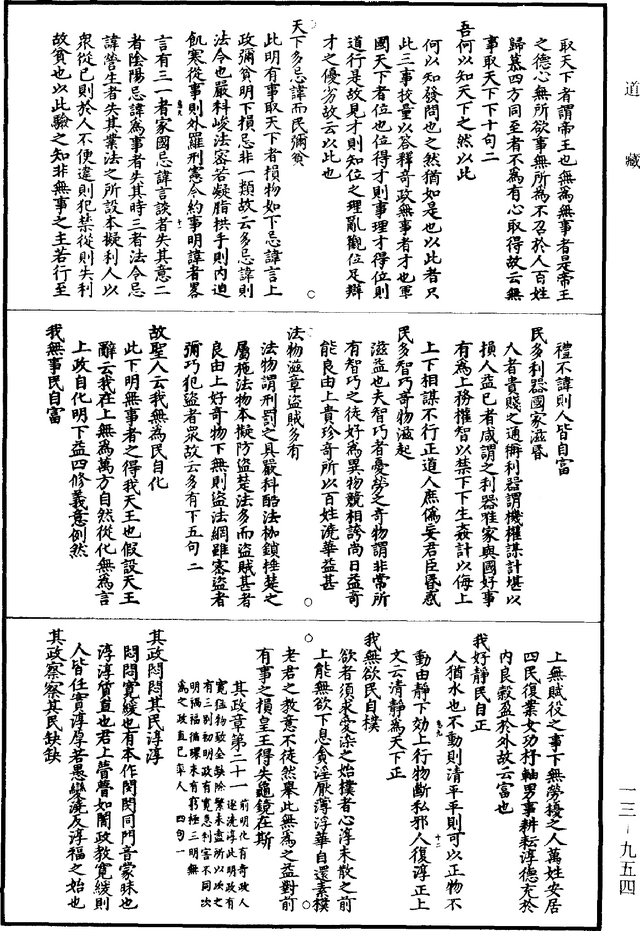 道藏
取天下者謂帝王也無為無事者是帝王
之德心無所欲事無所為不召於人百姓
歸慕四方同至者不為有心取得故云無
事取天下下十句二
吾何以知天下之然以此
何以知發問也之然猶如是也以此者只
此三事挍量以答釋奇政無事者才也軍
國天下者位也位得才則事理才得位則
道行是故見才則知位之理亂觀位足辯
才之優劣故云以此也
天下多忌諱而民彌貧
此明有事取天下者損物如下忌諱言上
政彌貧明下損忌非一類故云多忌諱則
法令也嚴科峻法密若凝脂拱手則內迫
飢寒從事則外羅刑憲令約事明諱者畧
言有三一者家國忌諱言談者失其意二
者陰陽忌諱為事者失其時三者法令忌
諱營生者失其業法之所設本擬利人以
衆從已則於人不便違則犯禁從則失利
故貧也以此驗之知非無事之主若行至
禮不諱則人皆自富
民多利器國家滋昏
人者貴賤之通稱利器謂機權謀計堪以
損人益已者咸謂之利器在家與國好事
有為上務權智以禁下下生姦計以侮上
上下相謀不行正道人庶僞妄君臣昏惑
民多智巧奇物滋起
滋益也夫智巧者憂勞之奇物謂非常所
有智巧之徒好為異物競相誇尚日益奇
能良由上貴珍奇所以百姓澆華益甚
法物滋章盜賊多有
法物謂刑罰之具嚴科酷法枷鎖棰楚之
屬施法物本擬防盜楚法多而盜賊甚者
良由上好奇物下無則盜法網雖密盜者
彌巧犯盜者衆故云多有下五句二
故聖人云我無為民自化
此下明無事者之得我天王也假設天王
辭云我在上無為萬方自然從化無為言
上政自化明下益四修義意例然
我無事民自富
上無賦役之事下無勞擾之人萬姓安居
四民復業女功杼軸男事耕耘淳德充於
內良穀盈於外故云富也
我好靜民自正
人猶水也不動則清平平則可以正物不
動由靜下効上行物斷私邪人復淳正上
文云清靜為天下正
我無欲民自樸
欲者須求愛染之始樸者心淳未散之前
上能無欲下息貪淫厭薄浮華自還素樸
老君之教意不徒然舉此無為之益對前
有事之損皇王得失龜鏡在斯
其政章第二十一
前明化有奇政人
遂澆淳此明政有
寬猛物致全缺除繁未盡所以次之
有三別初明政有寬急利害不同次
明禍福循環未有窮極三明無
為之政直已率人
四句一
其政悶悶其民淳淳
悶悶寬緩也有本作閔閔同門音蒙昧也
淳淳質直也君上瞢瞢如闇政教寬緩則
人皆任實淳厚者愚變澆反淳福之始也
其政察察其民缺缺
一三-九五四